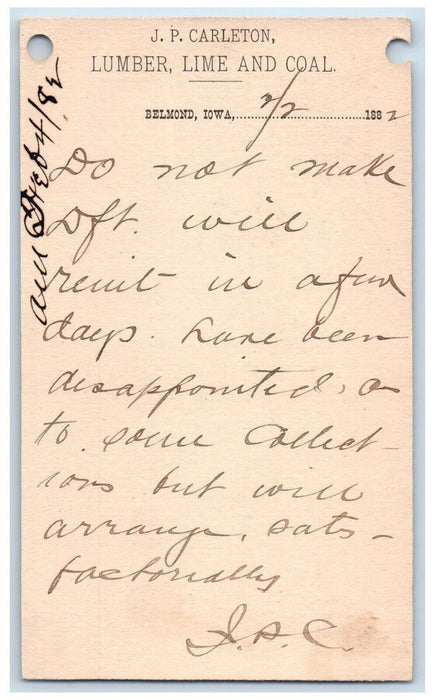 J. P. CARLETON,
LUMBER, LIME AND COAL.
BELMOND, IOWA, 2/2 1882
Do not make
Dft. will
remit in a few
days. have been
disappointed, as
to some Collect-
ions but will
arrange, satis-
factorially
J. P. C.
Feb 4/82